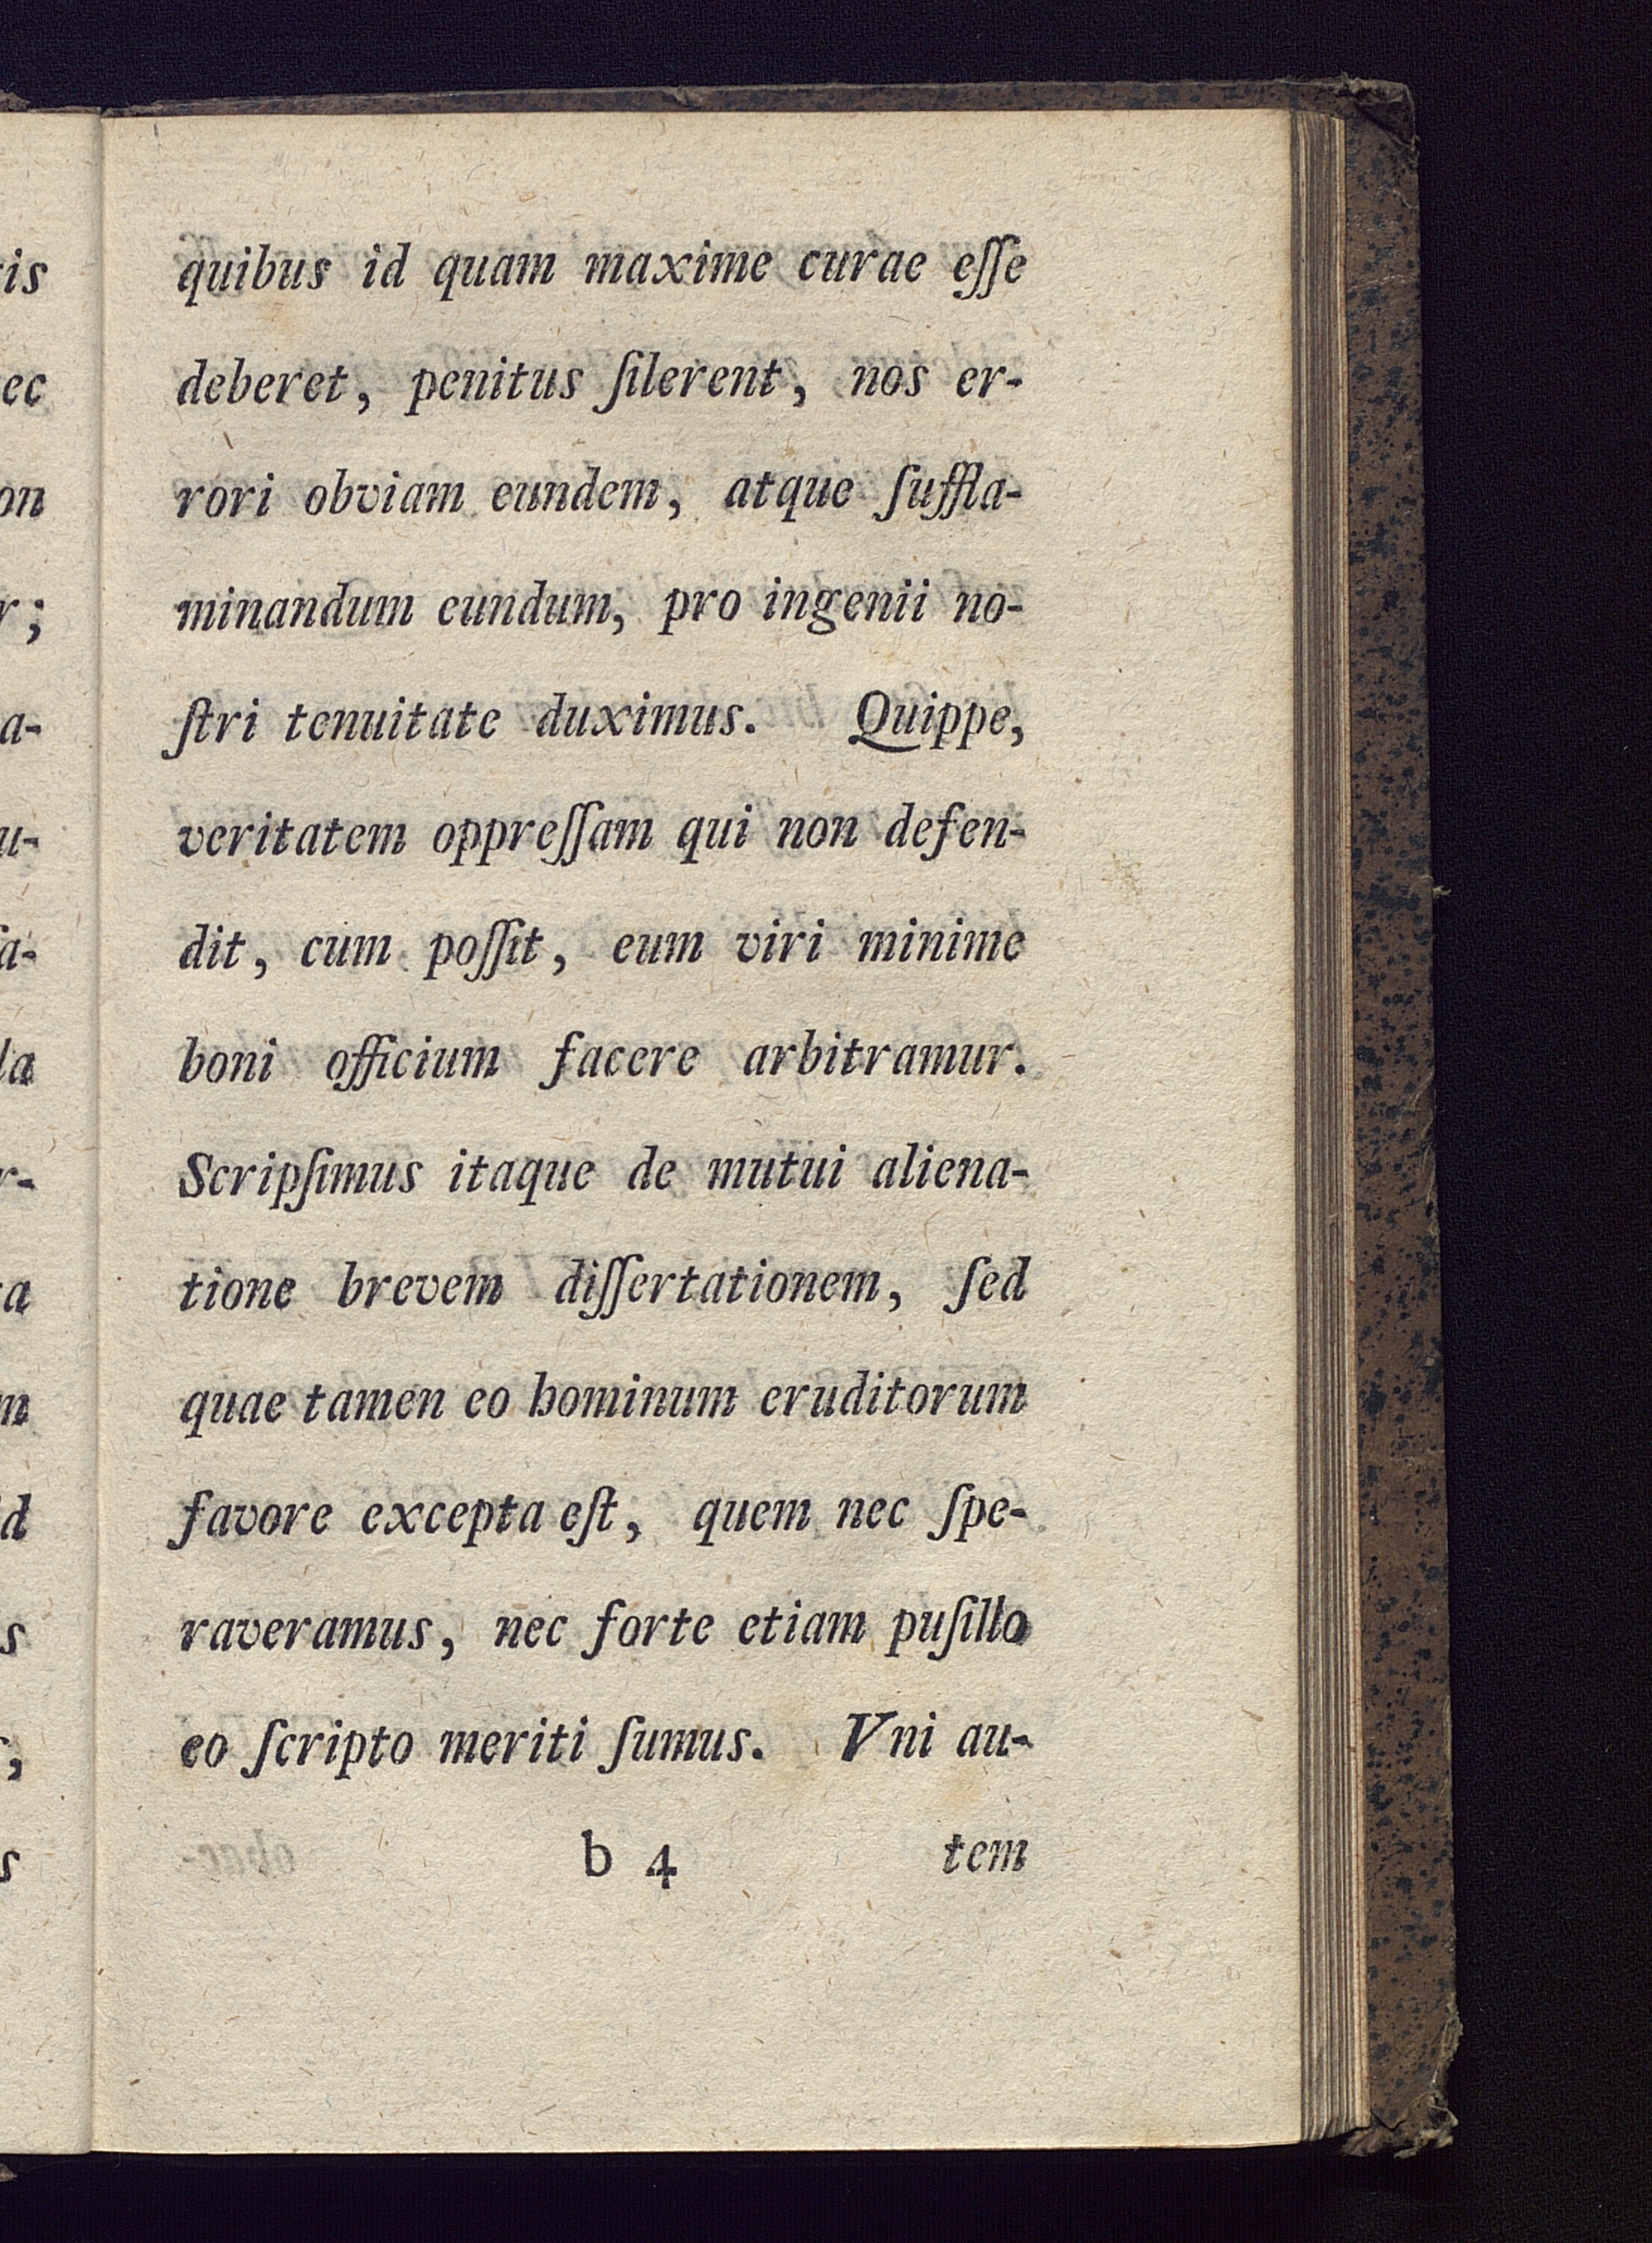 quibus id quam maxime curae eſſe
deberet, penitus ſilerent, nos er-
rori obviam eundem, atque ſuffla-
minandum eundum, pro ingenii no-
ſtri tenuitate duximus. Quippe,
veritatem oppreſſam qui non defen-
dit, cum poſſit, eum viri minime
boni officium facere arbitramur.
Scripſimus itaque de mutui aliena-
tione brevem diſſertationem, ſed
quae tamen eo hominum eruditorum
favore excepta eſt, quem nec ſpe-
raveramus, nec forte etiam puſillo
eo ſcripto meriti ſumus. Vni au-
b 4 tem